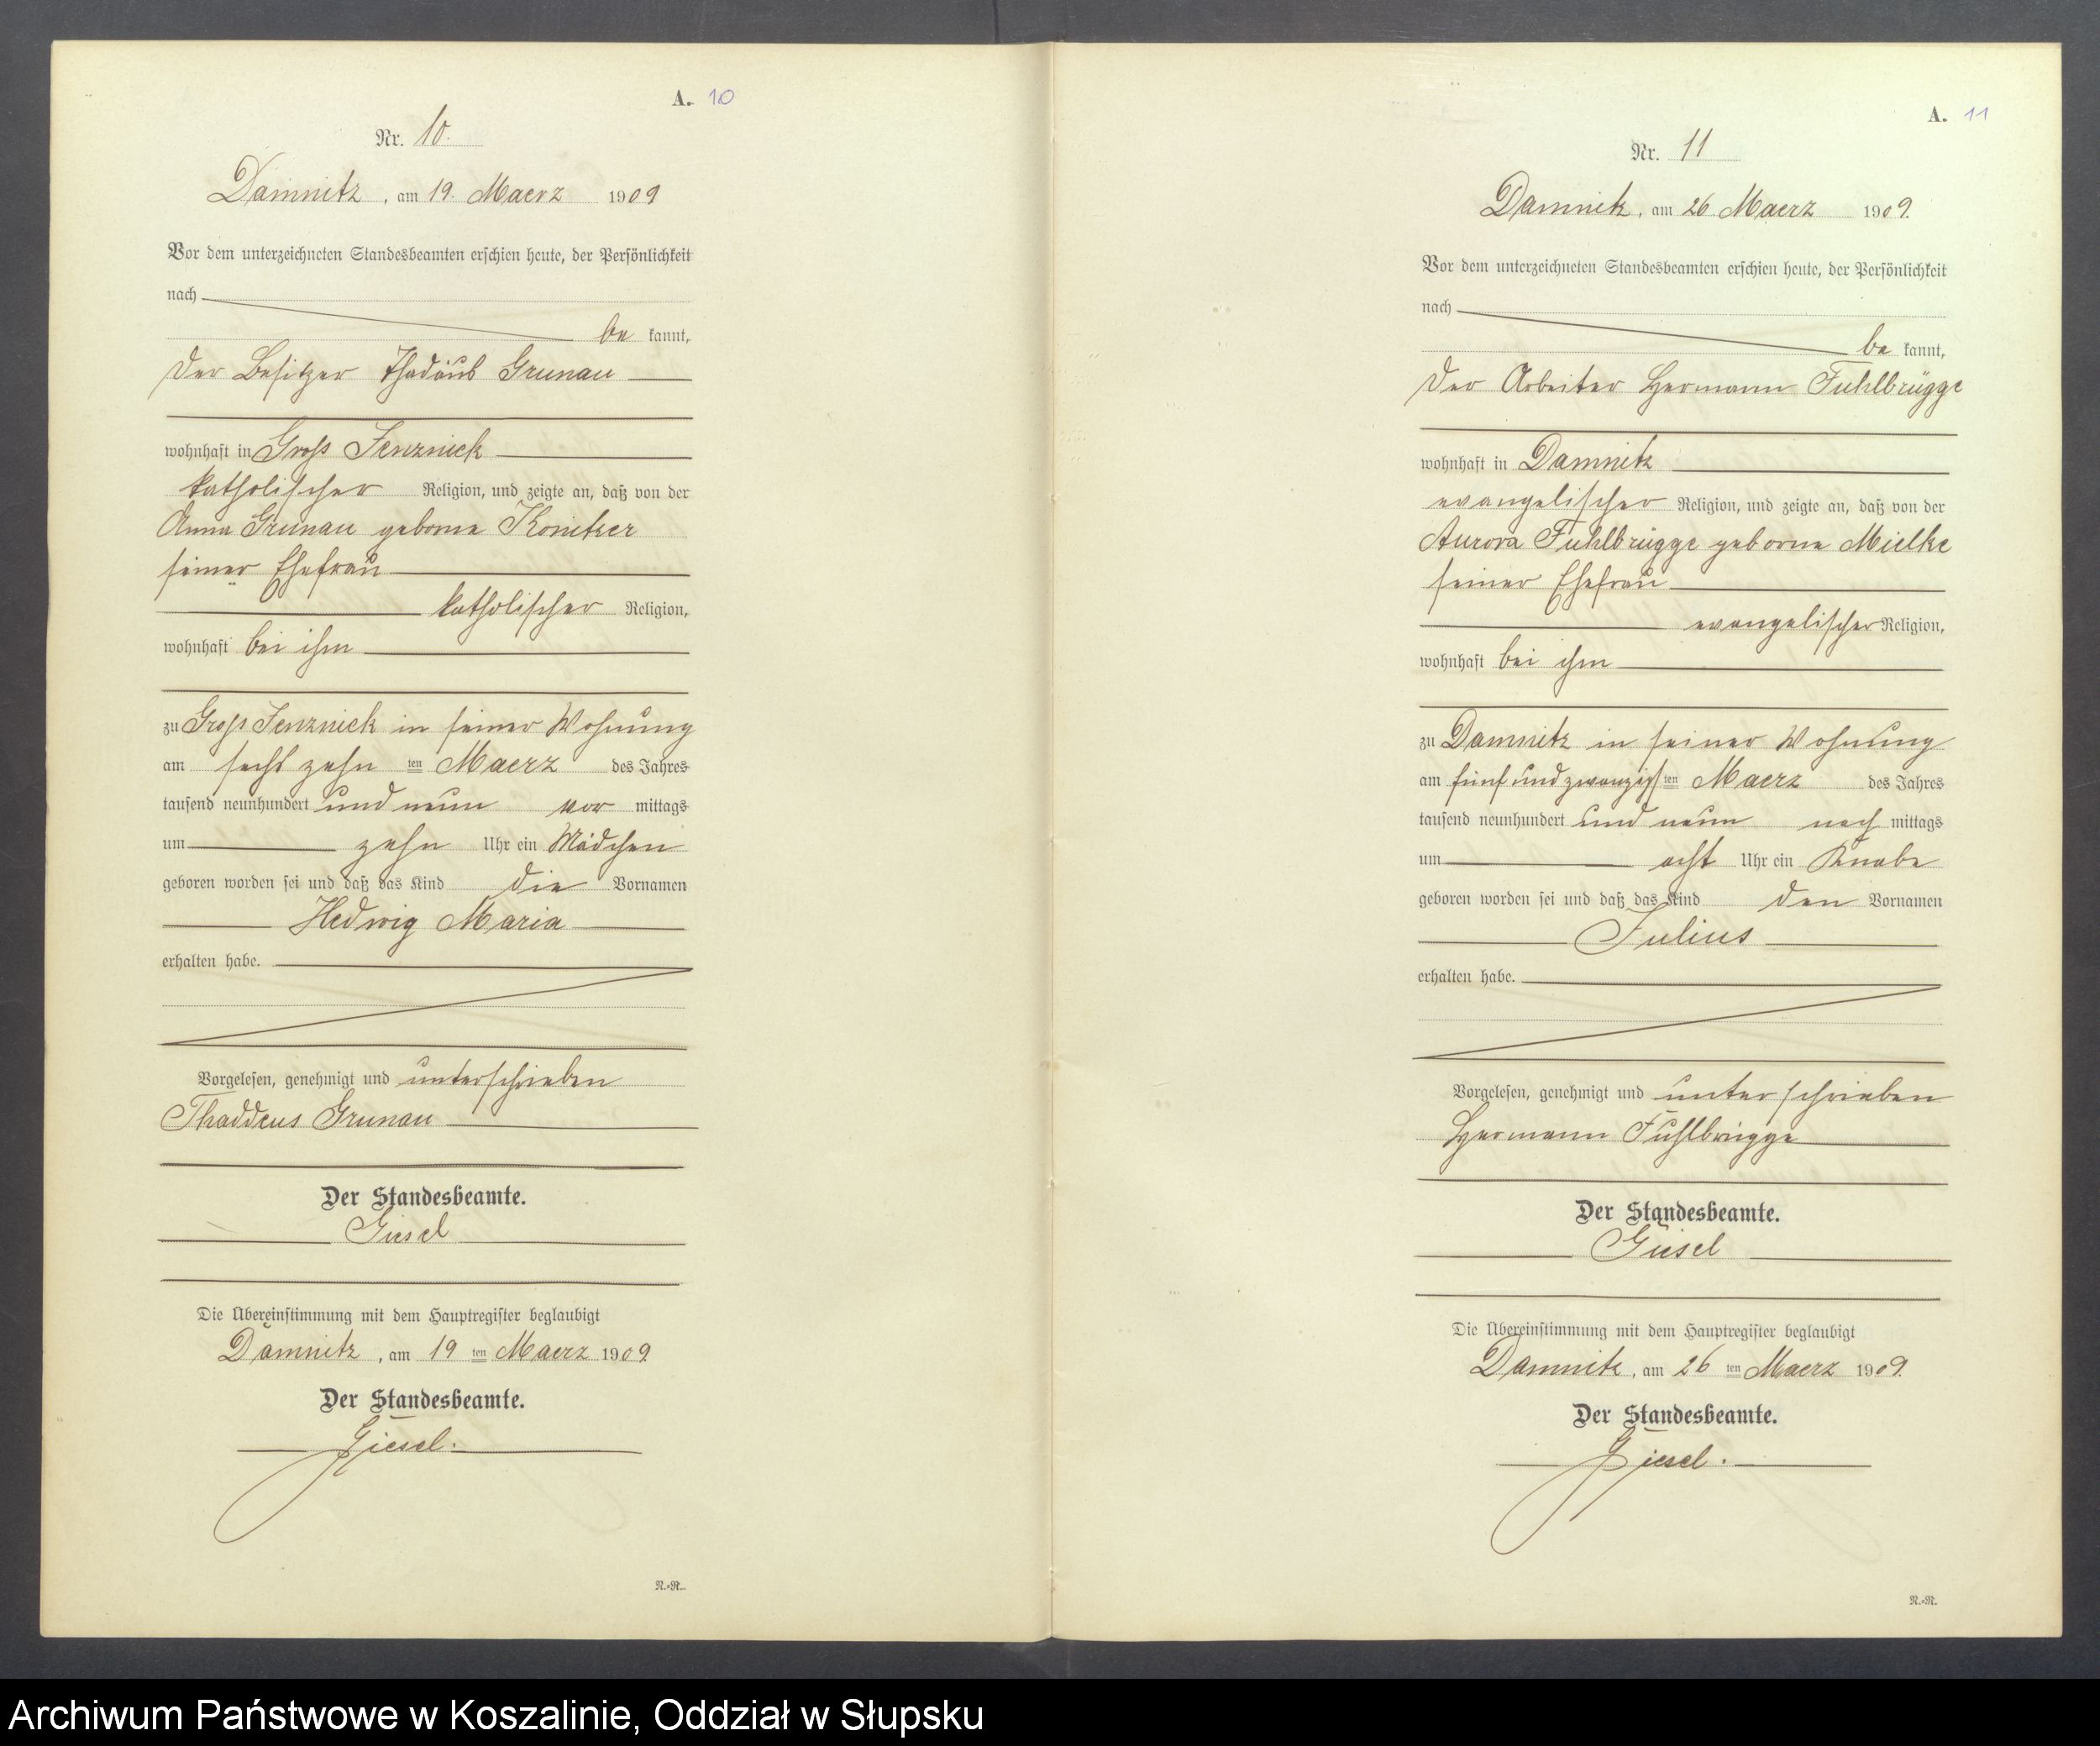 A. 10
Nr. 10.
Damnitz, am 19. Maerz 1909
Vor dem unterzeichneten Standesbeamten erschien heute, der Persönlichkeit
nach
be kannt,
der Besitzer Thadäus Grunau
wohnhaft in Gross Jenznick
katholischer Religion, und zeigte an, daß von der
Anna Grunau geborne Konitzer
seiner Ehefrau
katholischer Religion,
wohnhaft bei ihm
zu Gross Jenznick in seiner Wohnung
am sechszehn ten Maerz des Jahres
tausend neunhundert und neun vor mittags
um zehn Uhr ein Mädchen
geboren worden sei und daß das Kind die Vornamen
Hedwig Maria
erhalten habe.
Vorgelesen, genehmigt und unterschrieben
Thaddeus Grunau
Der Standesbeamte.
Giesel
Die Übereinstimmung mit dem Hauptregister beglaubigt
Damnitz, am 19 ten Maerz 1909
Der Standesbeamte.
Giesel.
N.=R.
A. 11
Nr. 11
Damnitz, am 26 Maerz 1909.
Vor dem unterzeichneten Standesbeamten erschien heute, der Persönlichkeit
nach
be kannt,
der Arbeiter Hermann Fuhlbrügge
wohnhaft in Damnitz
evangelischer Religion, und zeigte an, daß von der
Aurora Fuhlbrügge geborne Mielke
seiner Ehefrau
evangelischer Religion,
wohnhaft bei ihm
zu Damnitz in seiner Wohnung
am fünfundzwanzigs ten Maerz des Jahres
tausend neunhundert und neun nach mittags
um acht Uhr ein Knabe
geboren worden sei und daß das Kind den Vornamen
Julius
erhalten habe.
Vorgelesen, genehmigt und unterschrieben
Hermann Fuhlbrügge
Der Standesbeamte.
Giesel
Die Übereinstimmung mit dem Hauptregister beglaubigt
Damnitz, am 26 ten Maerz 1909.
Der Standesbeamte.
Giesel.
N.=R.
Archiwum Państwowe w Koszalinie, Oddział w Słupsku